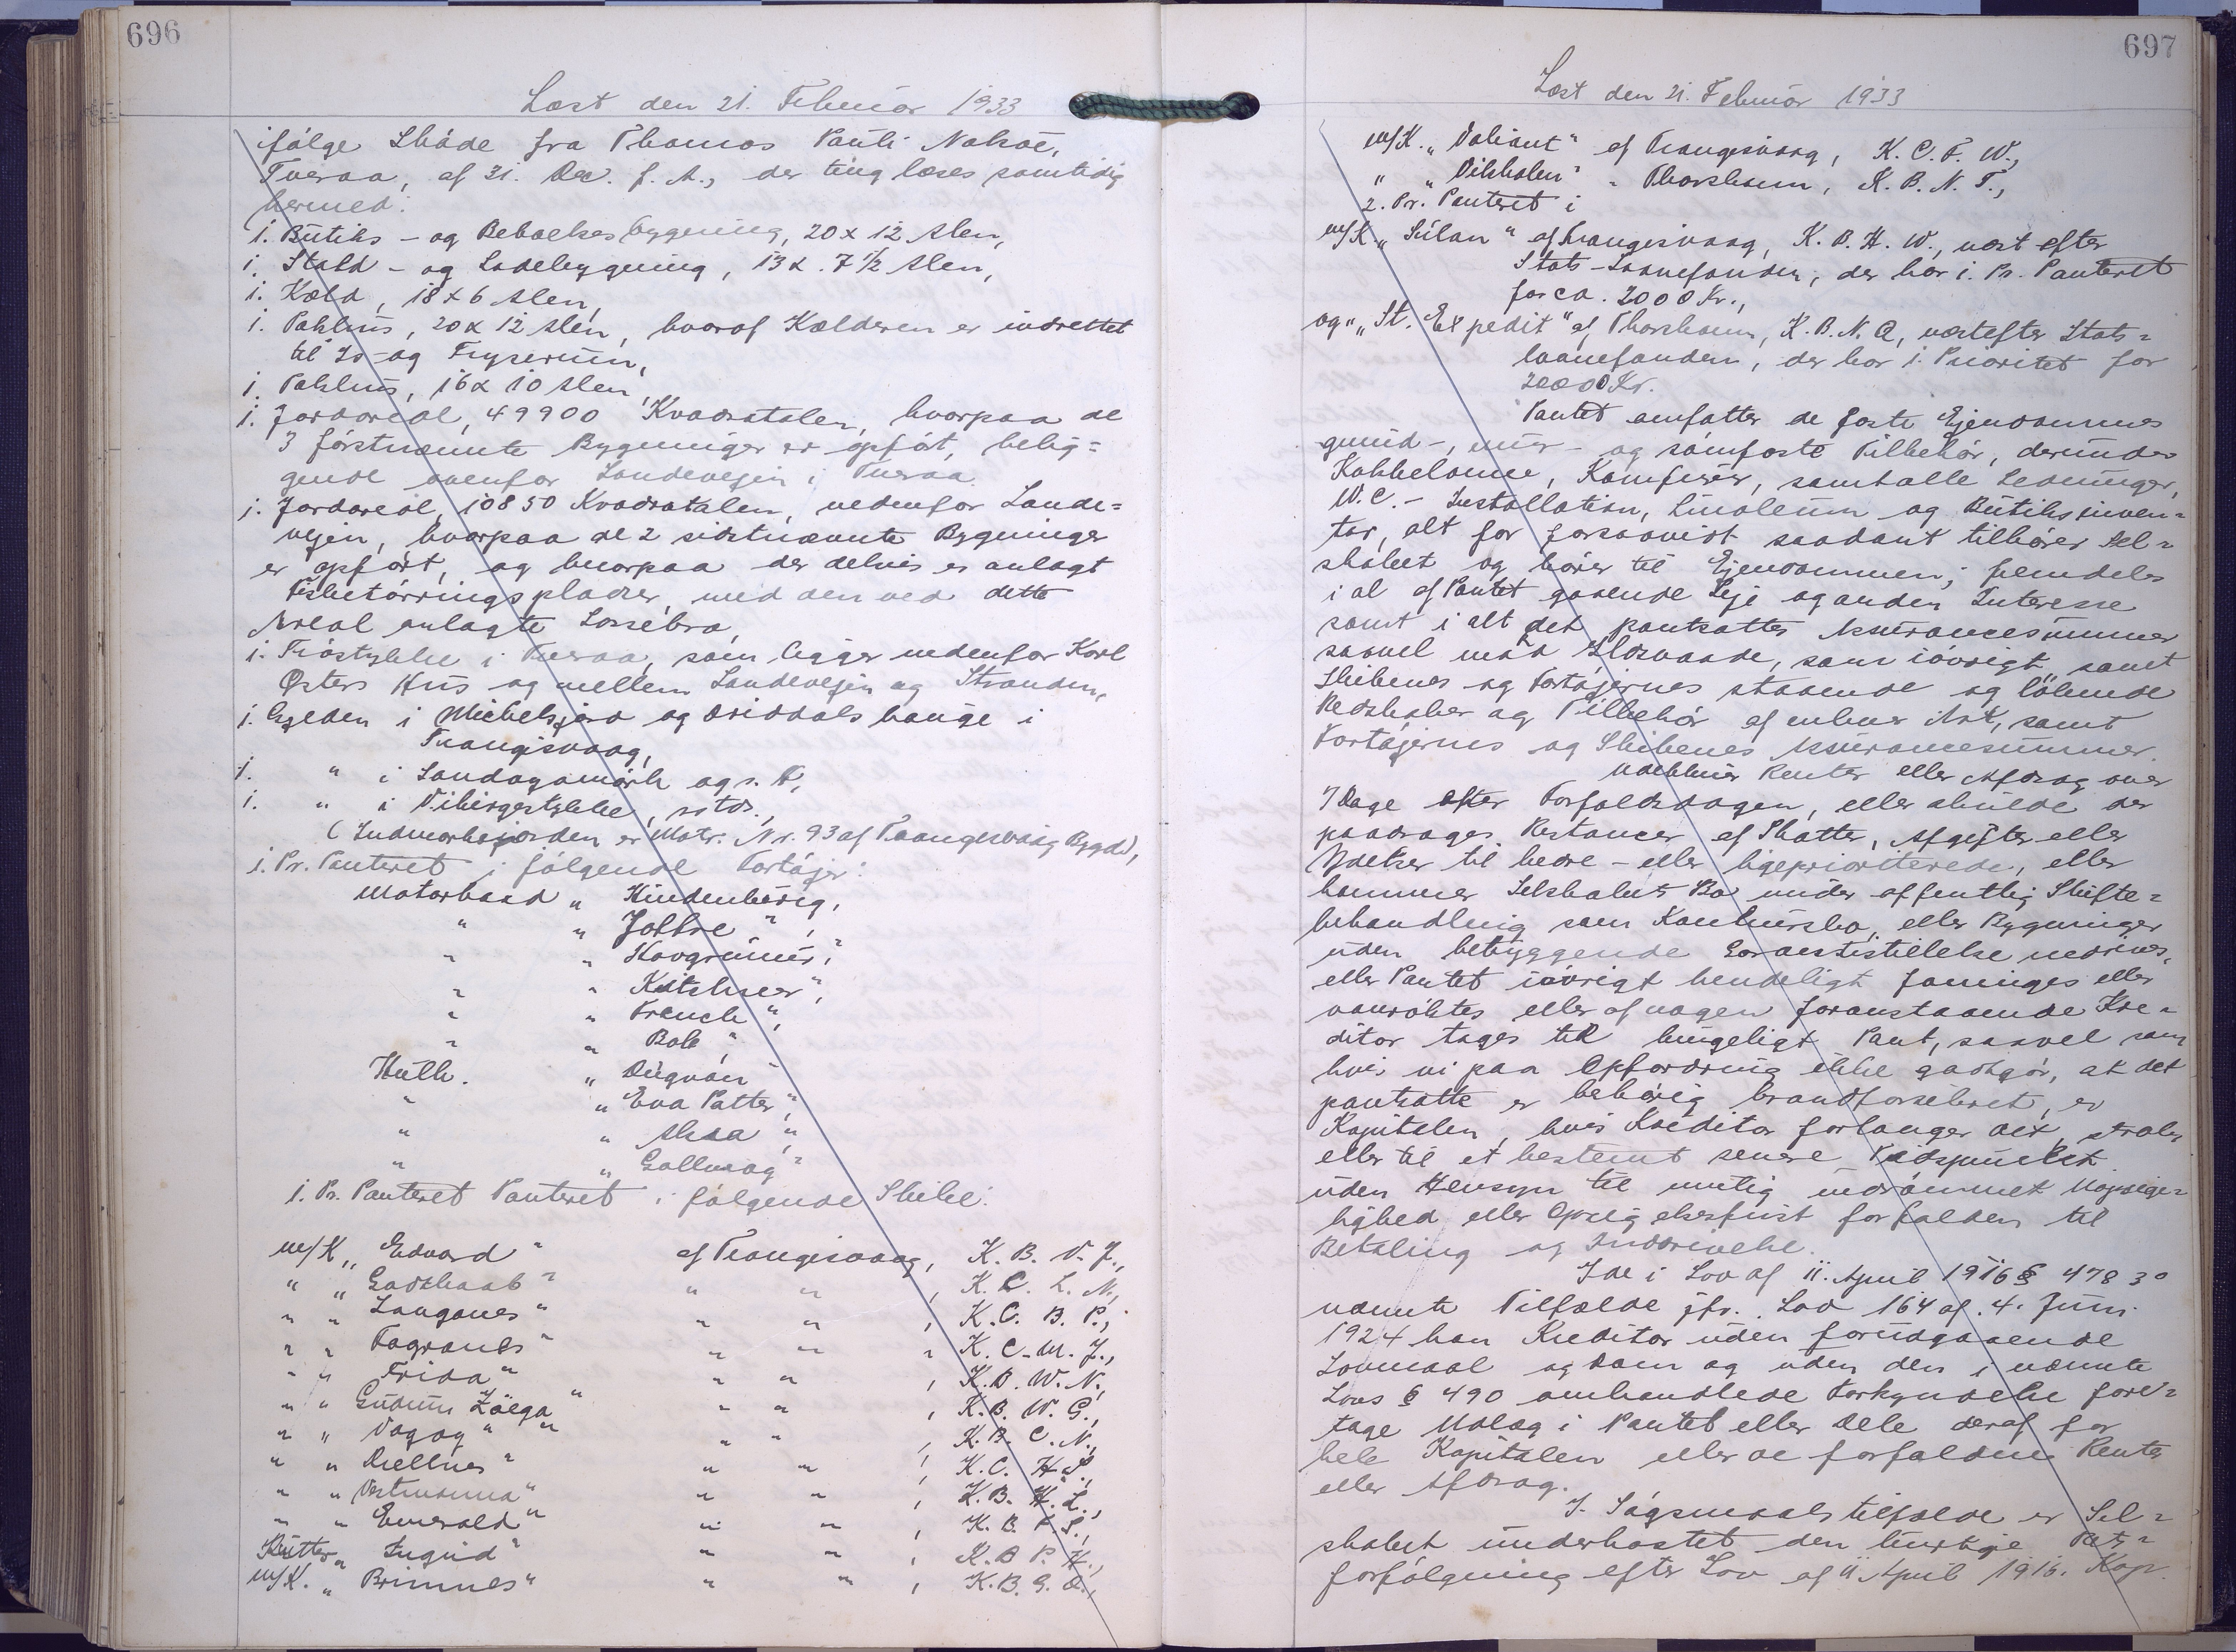 696
Læst den 21. Februar 1933
ifølge Skøde fra Thomas Pauli Nolsøe,
Tveraa, af 31. Dec. f. A., der tinglæses samtidig
hermed:
1. Butiks- og Beboelsesbygning, 20 x 12 Alen,
1. Stald- og Ladebygning, 13 x 7 1/2 Alen,
1. Kæld, 18 x 6 Alen,
1. Pakhus, 20 x 12 Alen, hvoraf Kælderen er indrettet
til Is- og Fryserum,
1. Pakhus, 16 x 10 Alen,
1. Jordareal, 49900 Kvadratalen, hvorpaa de
3 førstnævnte Bygninger er opført, belig=
gende ovenfor Landevejen i Tveraa.
1. Jordareal, 10850 Kvadratalen, nedenfor Lande=
vejen, hvorpaa de 2 sidstnævnte Bygninger
er opført, og hvorpaa der delvis er anlagt
Fisketørringspladser, med den ved dette
Areal anlagte Lossebro,
1. Trøstykke i Tveraa, som ligger nedenfor Karl
Østers Hus og mellem Landevejen og Stranden,
1. Egeden i Michelsjørd og Driddalshauge i
Trangisvaag,
1. " i Landagamørk ags. T,
1. " i Vibirgestykke, sstds.,
(Indmarksjorden er Matr. Nr. 93 af Trangisvaag Bygd),
1. Pr. Panteret i følgende Fartøjer:
Motorbaad „ Hindenburg,
" „ Joffre ",
" „ Havgrimur,"
" „ Kitchner",
" „ French ",
" „ Bob "
Kutt. „ Dugvan "
" „ Eva Patter",
" „ Alsaa "
" „ Gallvaag"
1. Pr. Panteret Panteret i følgende Skibe:
m/K „ Edvard " af Trangisvaag, K. B. V. J.,
" „ Godthaab " " " , K. C. L. N.,
" „ Langanes " " " , K. C. B. P.,
" „ Fagranes " " " , K. C. M. J.,
" „ Frida " " " , K. B. W. N.,
" „ Gudrun Zöega " " " , K. B. W. G.,
" „ Vagoy " " " , K. B. C. N.,
" „ Drellnes " " " , K. C. H. S.,
" „ Vestmanna " " " , K. B. H. L.,
" „ Emerald " " " , K. B. F. S.,
Kutter „ Ingrid " " " , K. B. P. H.,
m/K. „ Brimnes " " " , K. B. G. D.,
697
Læst den 21. Februar 1933
m/K. „ Valiant " af Trangisvaag, K. C. F. W.,
" „ Vilshalen " " Thorshavn, K. B. N. T.,
2. Pr. Panteret i
m/K. „ Súlan " af Trangisvaag, K. B. H. W., næst efter
Stats-Laanefonden, der har 1. Pr. Panteret
for ca. 2000 Kr.,
og " „ St. Expedit" af Thorshavn, K. B. N. Q, næstefter Stats=
laanefonden, der har 1. Prioritet for
20000 Kr.
Pantet omfatter de faste Ejendommes
grund-, mur- og sømfaste Tilbehør, derunder
Kakkelovne, Komfurer, samt alle Ledninger,
W. C. - Installation, Linoleum og Butiksinven=
tar, alt for forsaavidt saadant tilhører Sel=
skabet og hører til Ejendommen; fremdeles
i al af Pantet gaaende Leje og anden Interesse
samt i alt det pantsattes Assurancesummer
saavel mod Ildsvaade, som iøvrigt, samt
Skibenes og Fartøjernes staaende og løbende
Redskaber og Tilbehør af enhver Art, samt
Fartøjernes og Skibenes Assurancesummer.
Udebliver Renter eller Afdrag over
7 Dage efter Forfaldsdagen, eller skulde der
paadrages Restancer af Skatter, Afgifter eller
Ydelser til bedre- eller ligeprioriterede, eller
kommer Selskabets Bo under offentlig Skifte=
behandling som Konkursbo, eller Bygninger
uden betryggende Garantistillelse nedrives,
eller Pantet iøvrigt kendeligt forringes eller
vanrøktes eller af nogen foranstaaende Kre=
ditor tages til brugeligt Pant, saavel som
hvis vi paa Opfordring ikke godtgør, at det
pantsatte er behørig brandforsikret, er
Kapitalen, hvis Kreditor forlanger det, straks
eller til et bestemt senere Tidspunkt
uden Hensyn til mulig indrømmet Uopsige=
lighed eller Opsigelsesfrist forfalden til
Betaling og Inddrivelse.
I de i Lov af 11. April 1916 § 478 3°
nævnte Tilfælde jfr. Lov 164 af 4. Juni
1924 kan Kreditor uden forudgaaende
Lovmaal og Dom og uden den i nævnte
Lovs § 490 omhandlede Forkyndelse fore=
tage Udlæg i Pantet eller Dele deraf for
hele Kapitalen eller de forfaldne Renter
eller Afdrag.
I Søgsmaalstilfælde er Sel=
skabet underkastet den hurtige Rets=
forfølgning efter Lov af 11 April 1916. Kap.